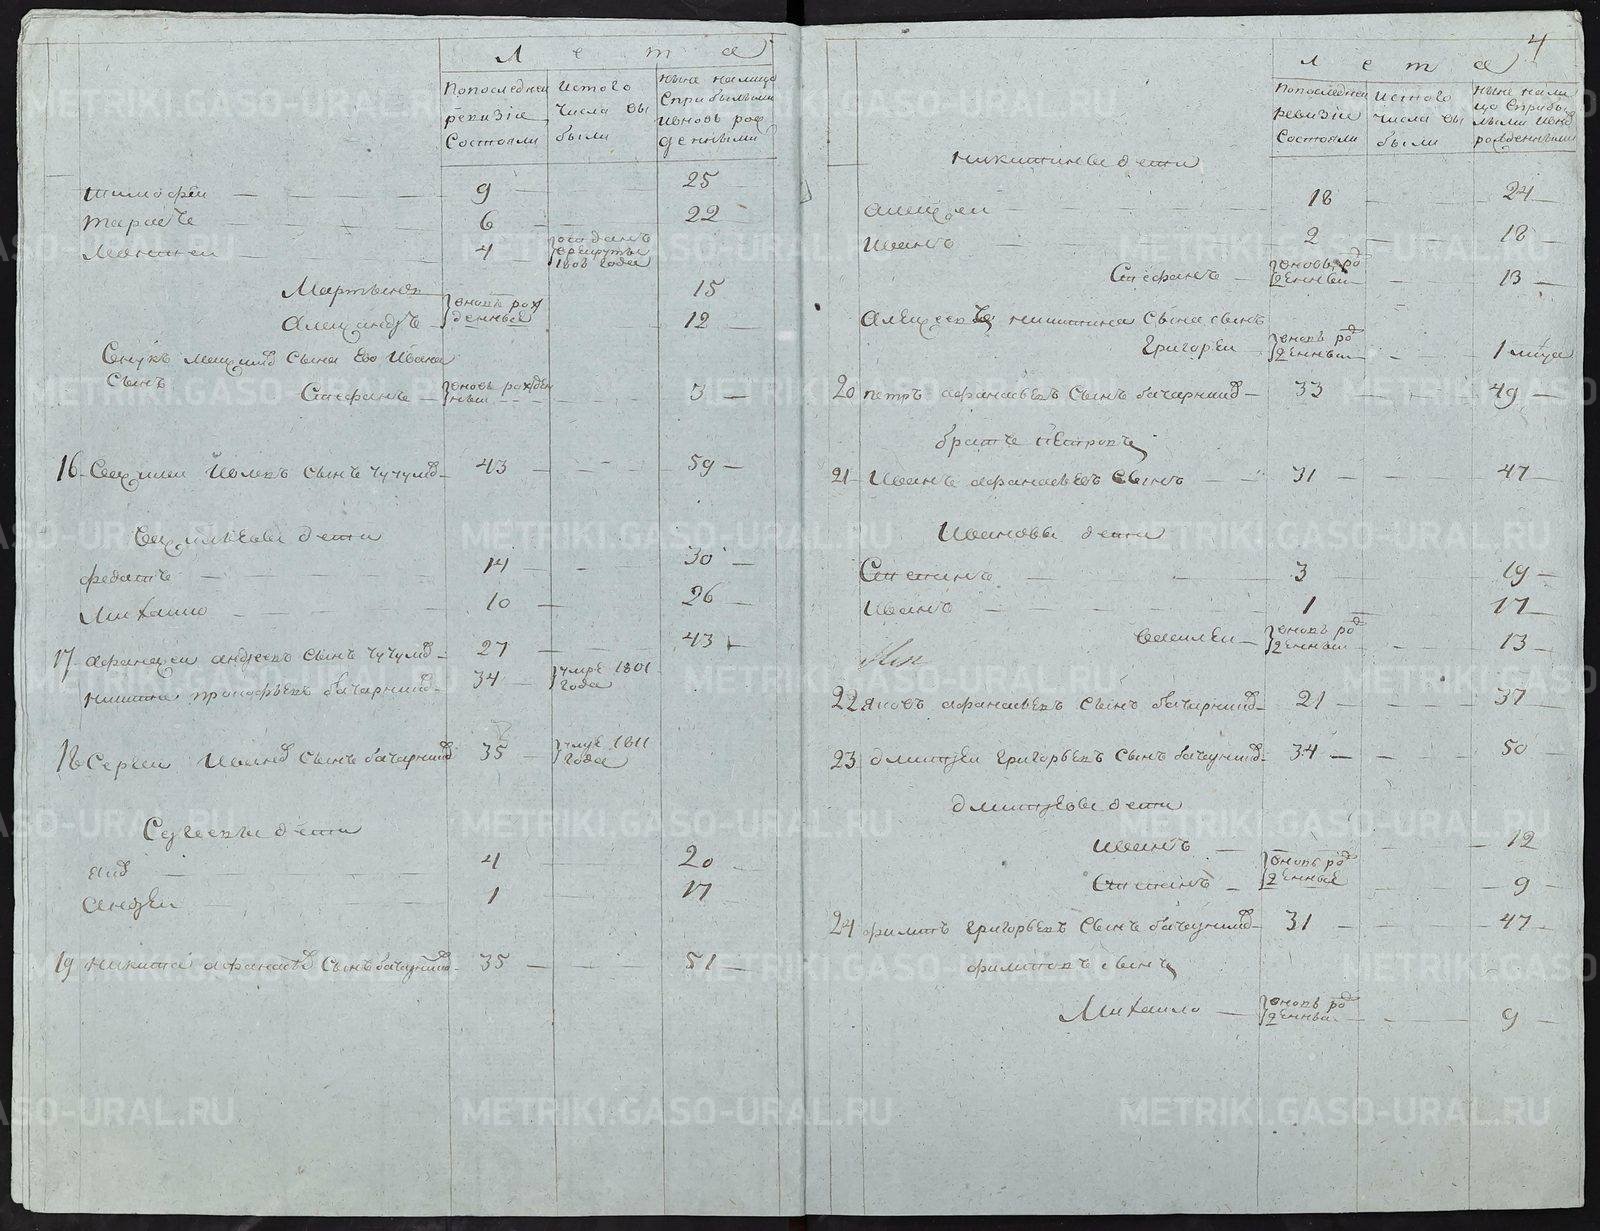 Лета
Попоследней ревизiи Состояли
Истого числа вы были
Ныне налицо Сприбылыми ивновь рож денными
тимофей 9 25
тарасъ 6 22
Матвей 4 отданъ врекруты года
Мартынъ 15
Александръ вновь рож денные 12
Сынъ
Стефанъ вновь рожден ный 3
16 сынъ 43 59
дети
федотъ 14 30
Михаило 10 26
17 Афанасей андреевъ сынъ 27 43
никита прокофьевъ бочарниковъ 34 умре 1801 года
18 Сергей Ивановъ Сынъ бочарниковъ 35 умре 1811 года
Сергеевы дети
яковъ 4 20
андрей 1 17
19 никита афанасьевъ Сынъ бочарниковъ 35 51
4
Лета
Попоследней ревизiи Состояли
Истого числа вы были
ныне нали цо Сприбы лыми ивновь рожденными
никитины дети
алексей 18 24
Иванъ 2 18
Стефанъ вновь рож денный 13
Алексея никитина сына сынъ
Григорей вновь рож денный 1 месяца
20 петръ афанасьевъ Сынъ бочарниковъ 33 49
братъ петровъ
21 Иванъ афанасьевъ Сынъ 31 47
Ивановы дети
Степанъ 3 19
Иванъ 1 17
василей вновь рож денный 13
22 яковъ афанасьевъ Сынъ бочарниковъ 21 37
23 дмитрей григорьевъ Сынъ бочарниковъ 34 50
дмитревы дети
иванъ 12
Степанъ вновь рож денные 9
24 филипъ григорьевъ Сынъ бочарниковъ 31 47
филиповъ сынъ
Михаило вновь рож денный 9
METRIKI.GASO-URAL.RU